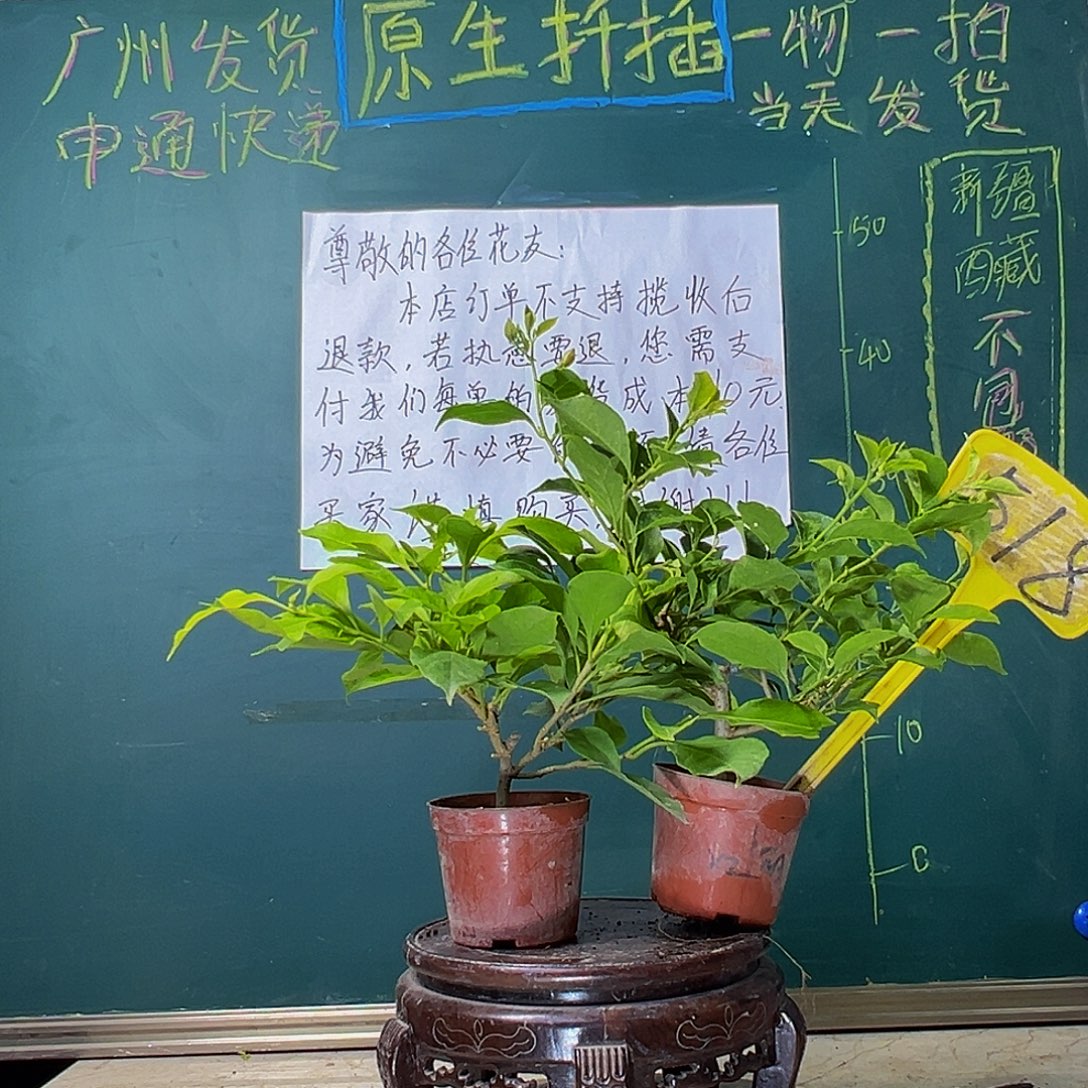 广州发货
申通快递
原生扦插
一物一拍
当天发货
新疆
西藏
不
尊敬的各位花友:
本店订单不支持揽收后
退款,若执意要退,您需支
付我们每单的 成本10元.
为避免不必要 请各位
买家 慎购买
50
40
10
518